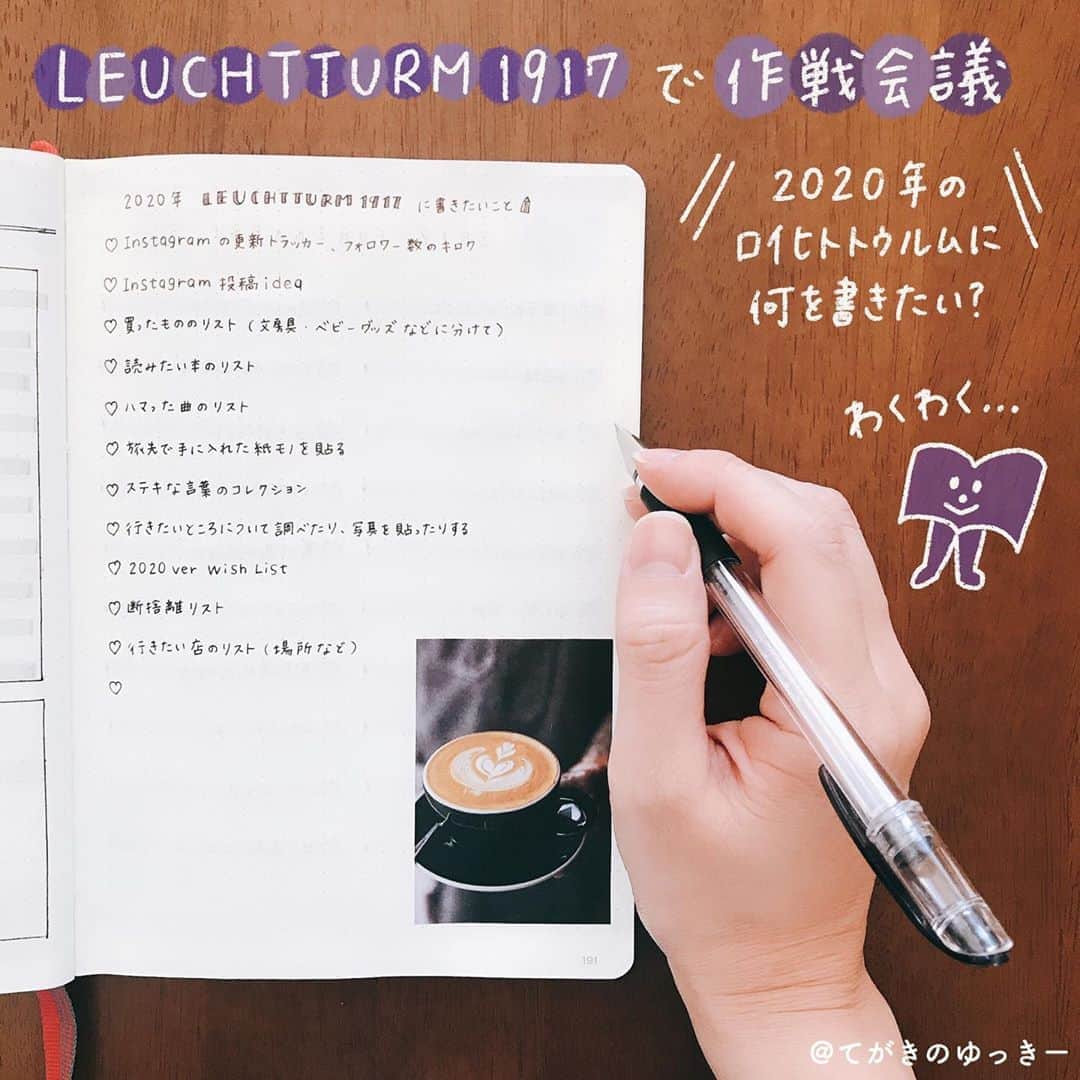 LEUCHTTURM1917 で 作戦会議
2020年の
ロイヒトトゥルムに
何を書きたい?
わくわく...
2020年 LEUCHTTURM1917 に書きたいこと
♡ Instagramの更新トラッカー、フォロワー数のキロク
♡ Instagram 投稿idea
♡ 買ったもののリスト(文房具・ベビーグッズなどに分けて)
♡ 読みたい本のリスト
♡ ハマった曲のリスト
♡ 旅先で手に入れた紙モノを貼る
♡ ステキな言葉のコレクション
♡ 行きたいところについて調べたり、写真を貼ったりする
♡ 2020 ver Wish List
♡ 断捨離リスト
♡ 行きたい店のリスト(場所など)
♡
191
@てがきのゆっきー